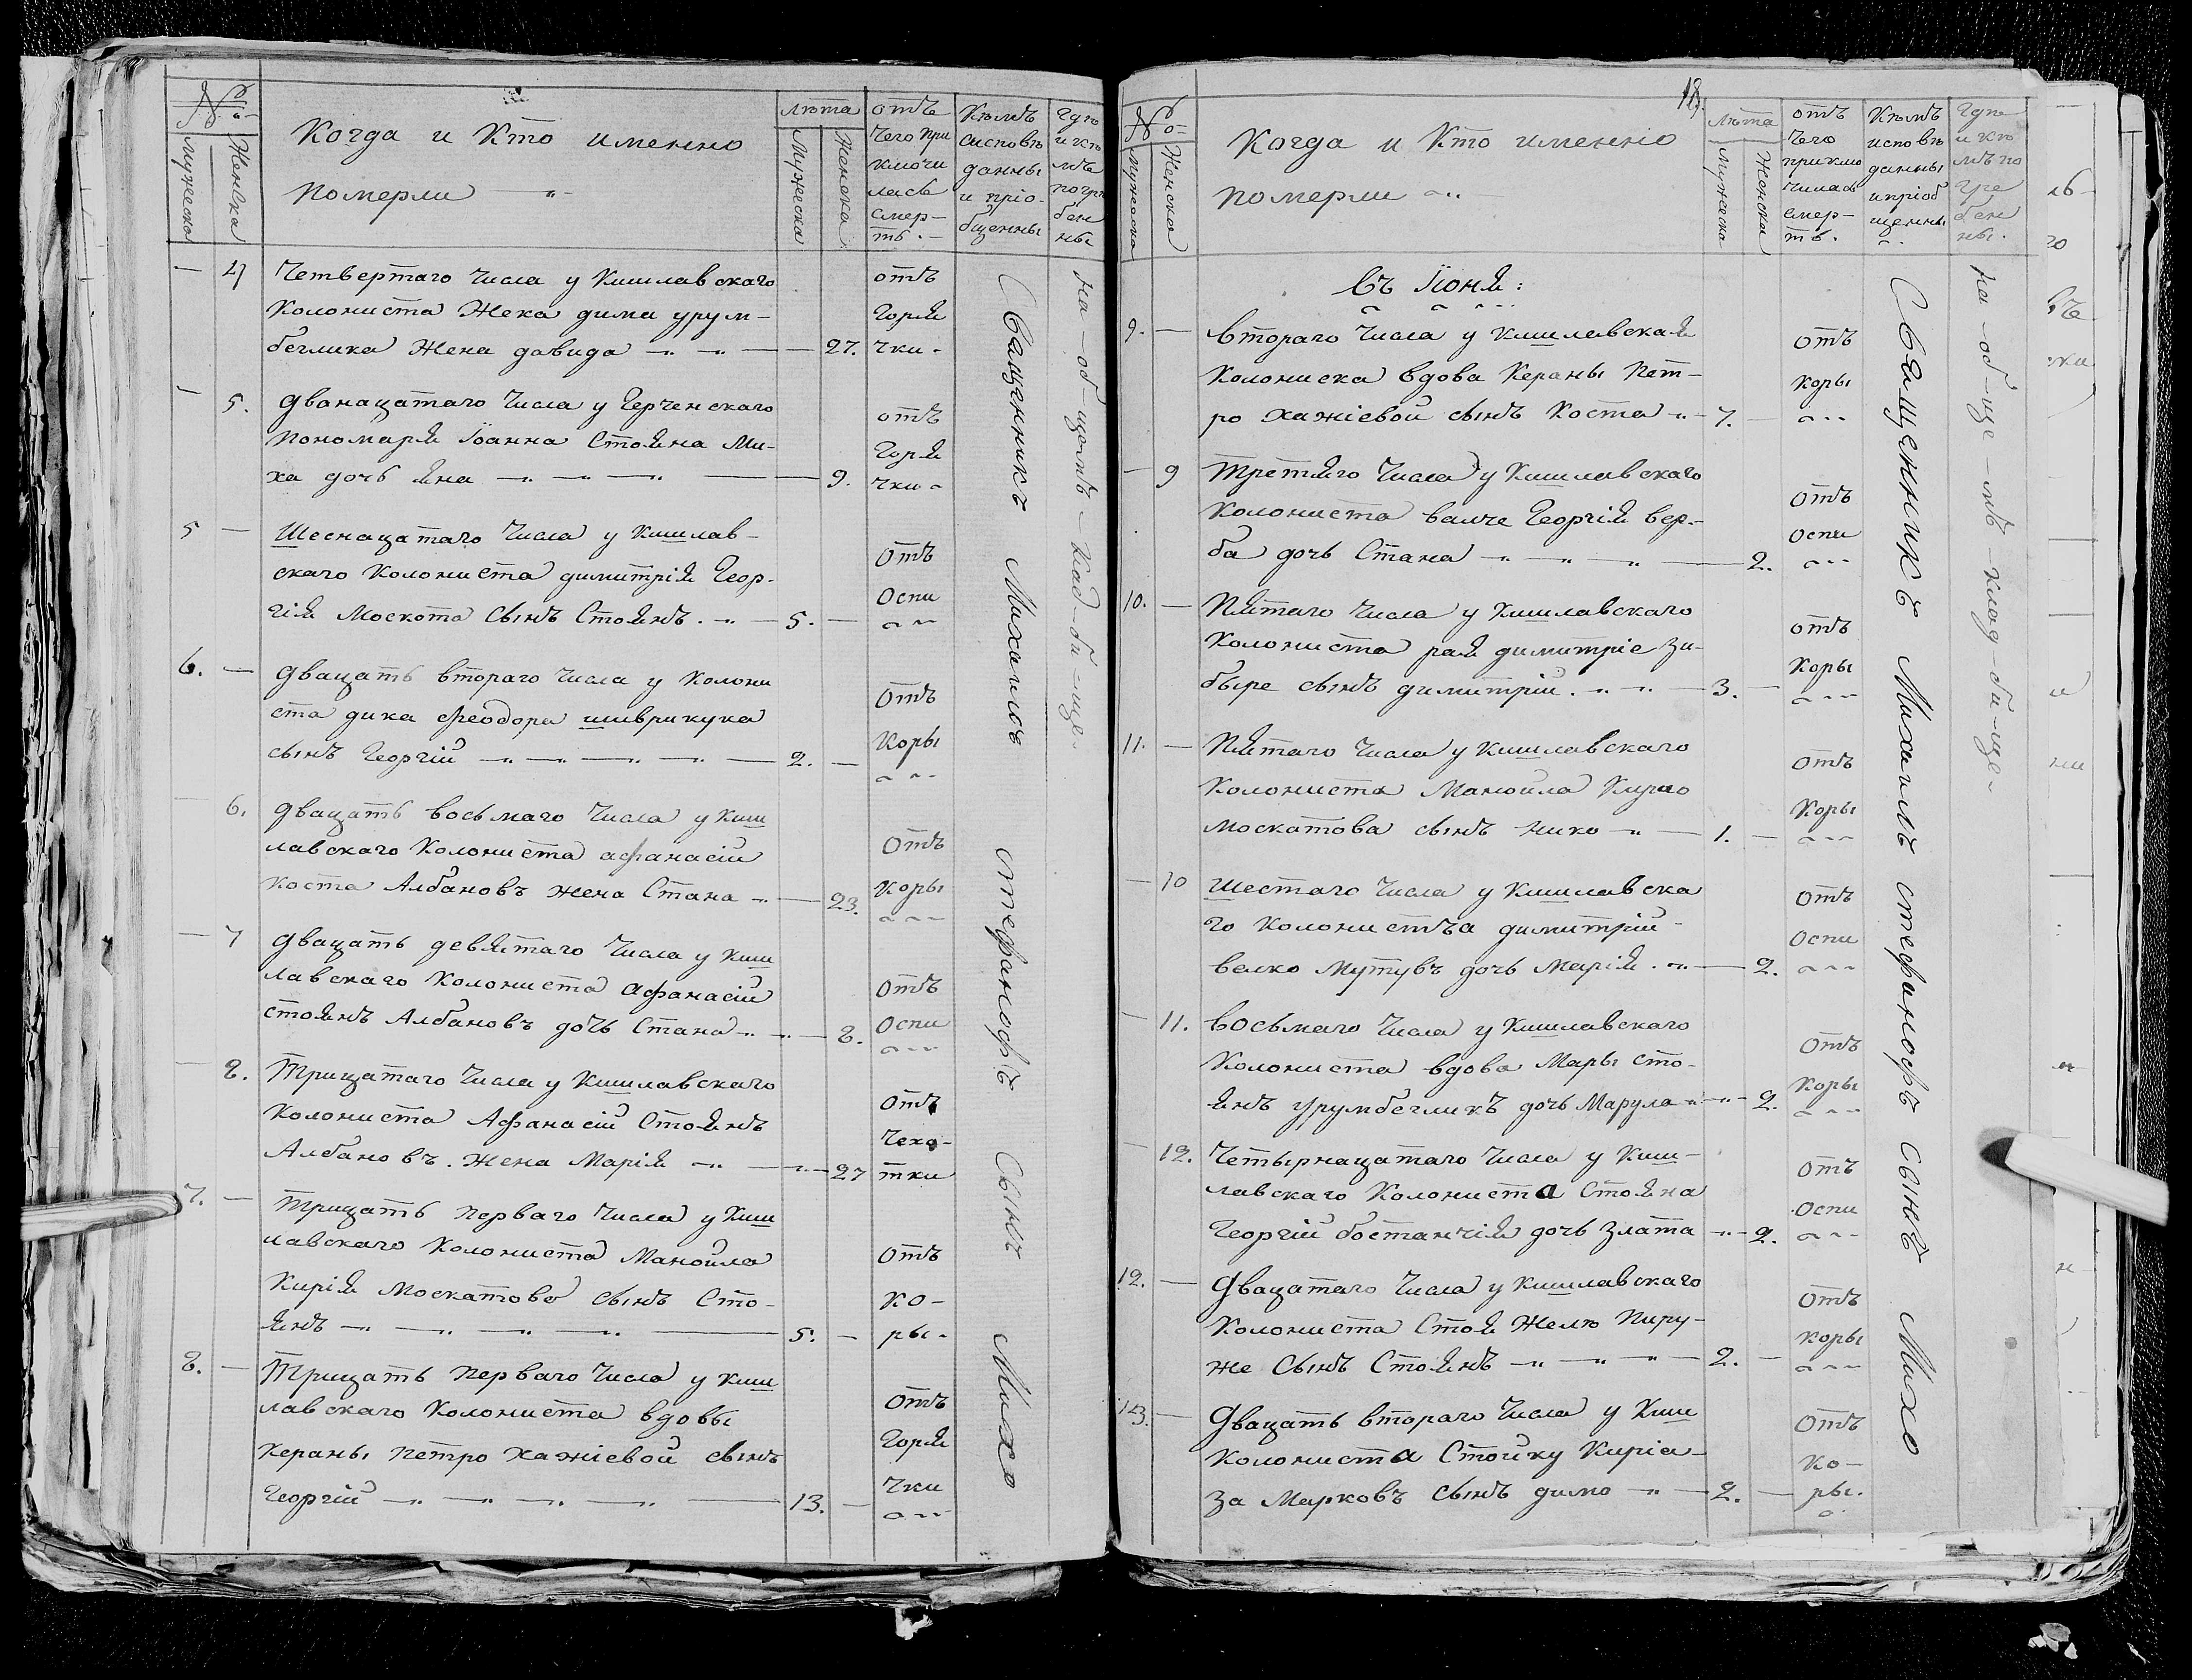 №
Мужеска
Женска
Когда и Кто именно
померли
Лѣта
Мужеска
Женска
отъ
чего при
ключи
лась
смер-
ть.
Кѣмъ
исповѣ
данны
и пріо-
бщенны
Гдѣ
и кѣ
мъ
погре
бен
ны
— 4 Четвертаго Числа у Кишлавскаго
Колониста Жека дима урум-
беглика Жена давида — 27.
отъ
Горя
чки -
— 5. Дванацатаго Числа у Герченскаго
Пономаря Іоанна Стояна Ми-
ха дочь яна — 9.
отъ
Горя
чки -
5 — Шеснацатаго Числа у Кишлав-
скаго Колониста димитрія Геор-
гія Москота Сынъ Стоянъ. — 5. —
Отъ
Оспи
6. — Двацать втораго Числа у Колони
ста дика феодора шиврикука
сынъ Георгій — 2. —
Отъ
Коры
— 6. Двацать восьмаго Числа у Киш
лавскаго Колониста афанасій
Коста Албановъ жена Стана — 23.
Отъ
Коры
— 7 Двацать девятаго Числа у Киш
лавскаго Колониста Афанасій
стоянъ Албановъ дочь Стана — 8.
Отъ
Оспи
— 8. Трицатаго Числа у Кишлавскаго
Колониста Афанасій Стоянъ
Албановъ. Жена Марія — 27
Отъ
Чехо-
тки
7. — Трицать Перваго Числа у Киш
лавскаго Колониста Манойла
Кирія Москатово Сынъ Сто-
янъ — 5. —
Отъ
Ко-
ры -
8. — Трицать Перваго Числа у Киш
лавскаго Колониста вдовы
Кераны Петро Хажіевой сынъ
Георгій — 13. —
Отъ
Горя
чки
Священникъ Михаилъ Стефанофъ Сынъ Михо
На - об - щомъ - Клад - би - ще -
18
№
Мужеска
Женска
Когда и Кто именно
померли
Лѣта
Мужеска
Женска
отъ
Чего
приклю
чилась
смер-
ть.
Кѣмъ
исповѣ
данны
и пріоб
щенны
Гдѣ
и кѣ
мъ по
гре
бен
ны.
Въ Іюня:
9. — Втораго Числа у Кишлавская
Колониска вдова Кераны Пет-
ро хажіевой сынъ Коста — 7. —
Отъ
Коры
— 9 Третяго Числа у Кишлавскаго
Колониста Велче Георгія вер-
ба дочь Стана — 2.
Отъ
Оспи
10. — Пятаго Числа у Кишлавскаго
Колониста рая димитріе Зи-
быре сынъ димитрій. — 3. —
Отъ
Коры
11. — Пятаго Числа у Кишлавскаго
Колониста Манойла Кирао
москатова сынъ Нико — 1. —
Отъ
Коры
— 10 Шестаго Числа у Кишлавска
го Колонистъа димитрій -
велко Мутувъ дочь Марія. — 2.
Отъ
Оспи
— 11. Восьмаго Числа у Кишлавскаго
Колониста вдова Мары Сто-
янъ урумбегликъ дочь Марула — 2.
Отъ
Коры
— 12. Четырнацатаго Числа у Киш-
лавскаго Колониста Стояна
Георгій бостанчія дочь Злата — 2.
Отъ
Оспи
12. — Двацатаго Числа у Кишлавскаго
Колониста Стоя Желю Пиру-
же Сынъ Стоянъ — 2. —
Отъ
Коры
13. — Двацать втораго Числа у Киш
Колониста Стойку Киріа-
за Марковъ Сынъ димо — 2. —
Отъ
Ко-
ры.
Священникъ Михаилъ Стефанофъ Сынъ Михо
На - об - ще - мъ - клад - би - ще -